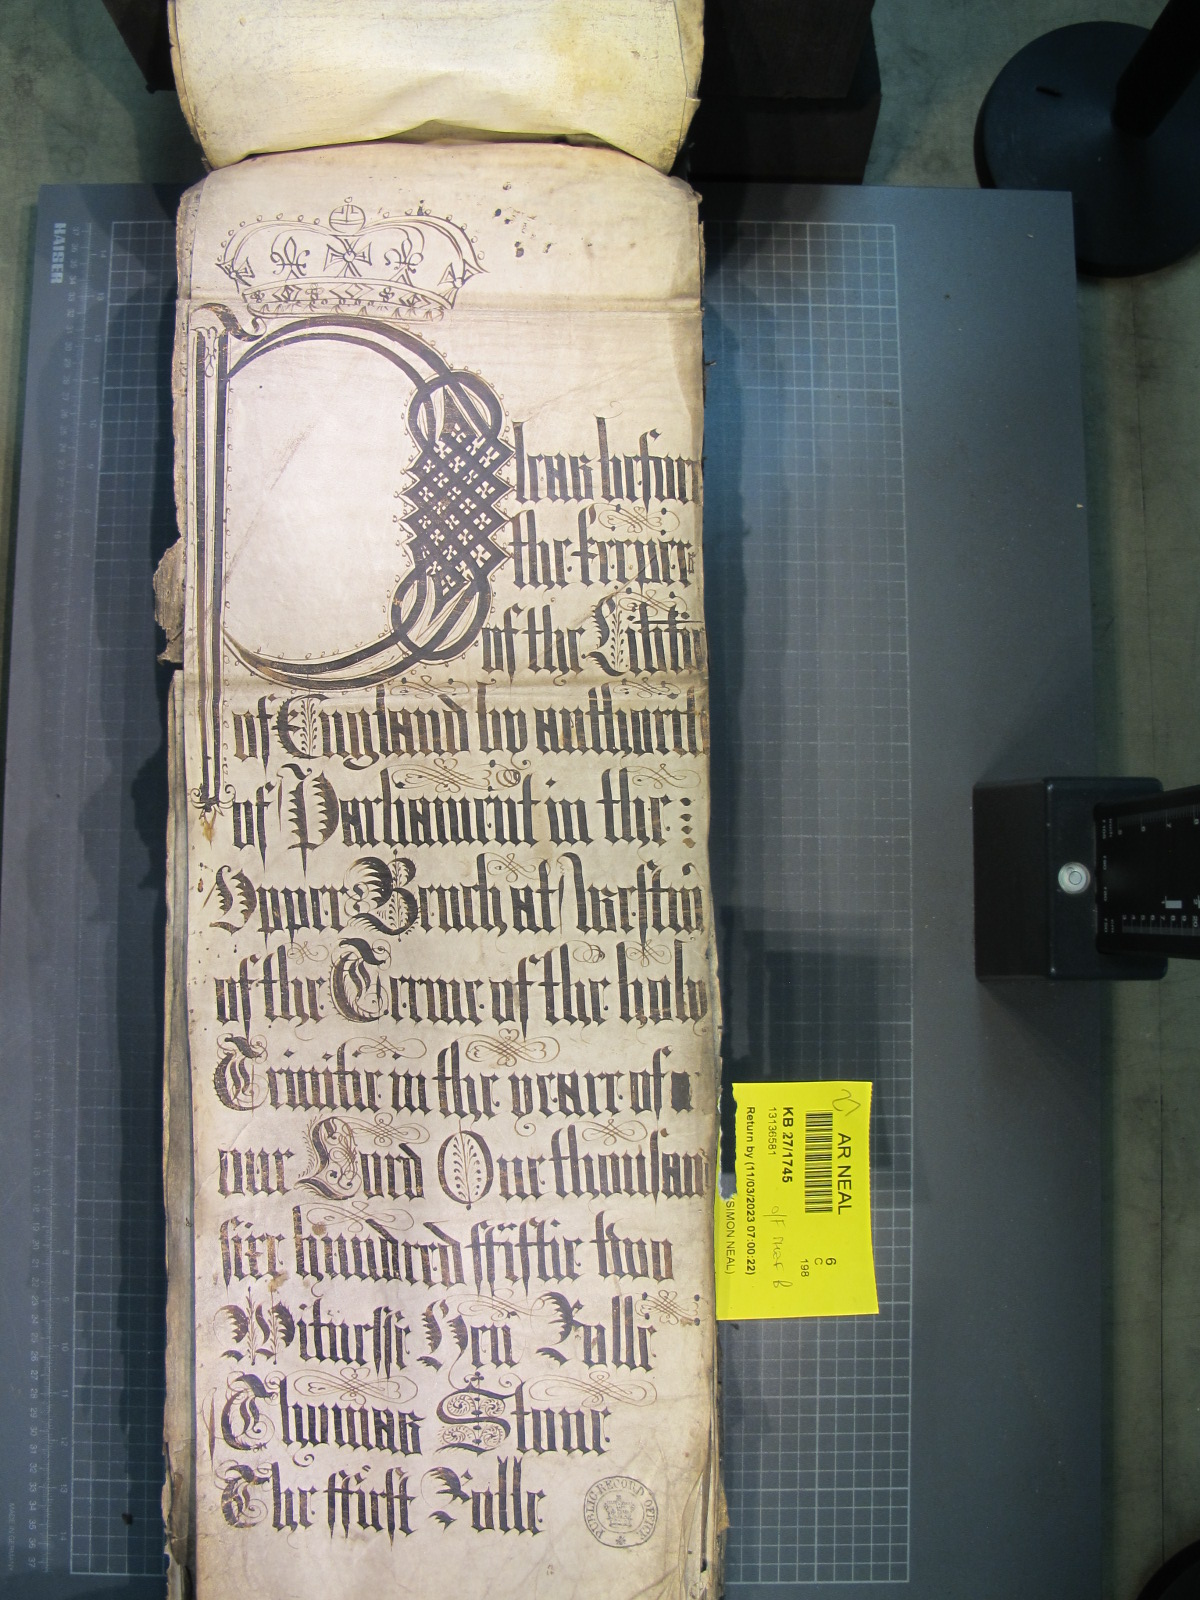 Pleas before
the keepers
of the Libtie
of England by authorit
of Parliament in the
Upper Bench at Westm
of the Terme of the holy
Trinitie in the yeare of
our Lord One thousand
sixe hundred ffiftie two
Witnesse Hen Rolle
Thomas Stone
The ffirst Rolle
PUBLIC RECORD OFFICE
AR NEAL
KB 27/1745
13136581
Return by (11/03/2023 07:00:22)
(SIMON NEAL)
6
C
198
KAISER
MADE IN GERMANY